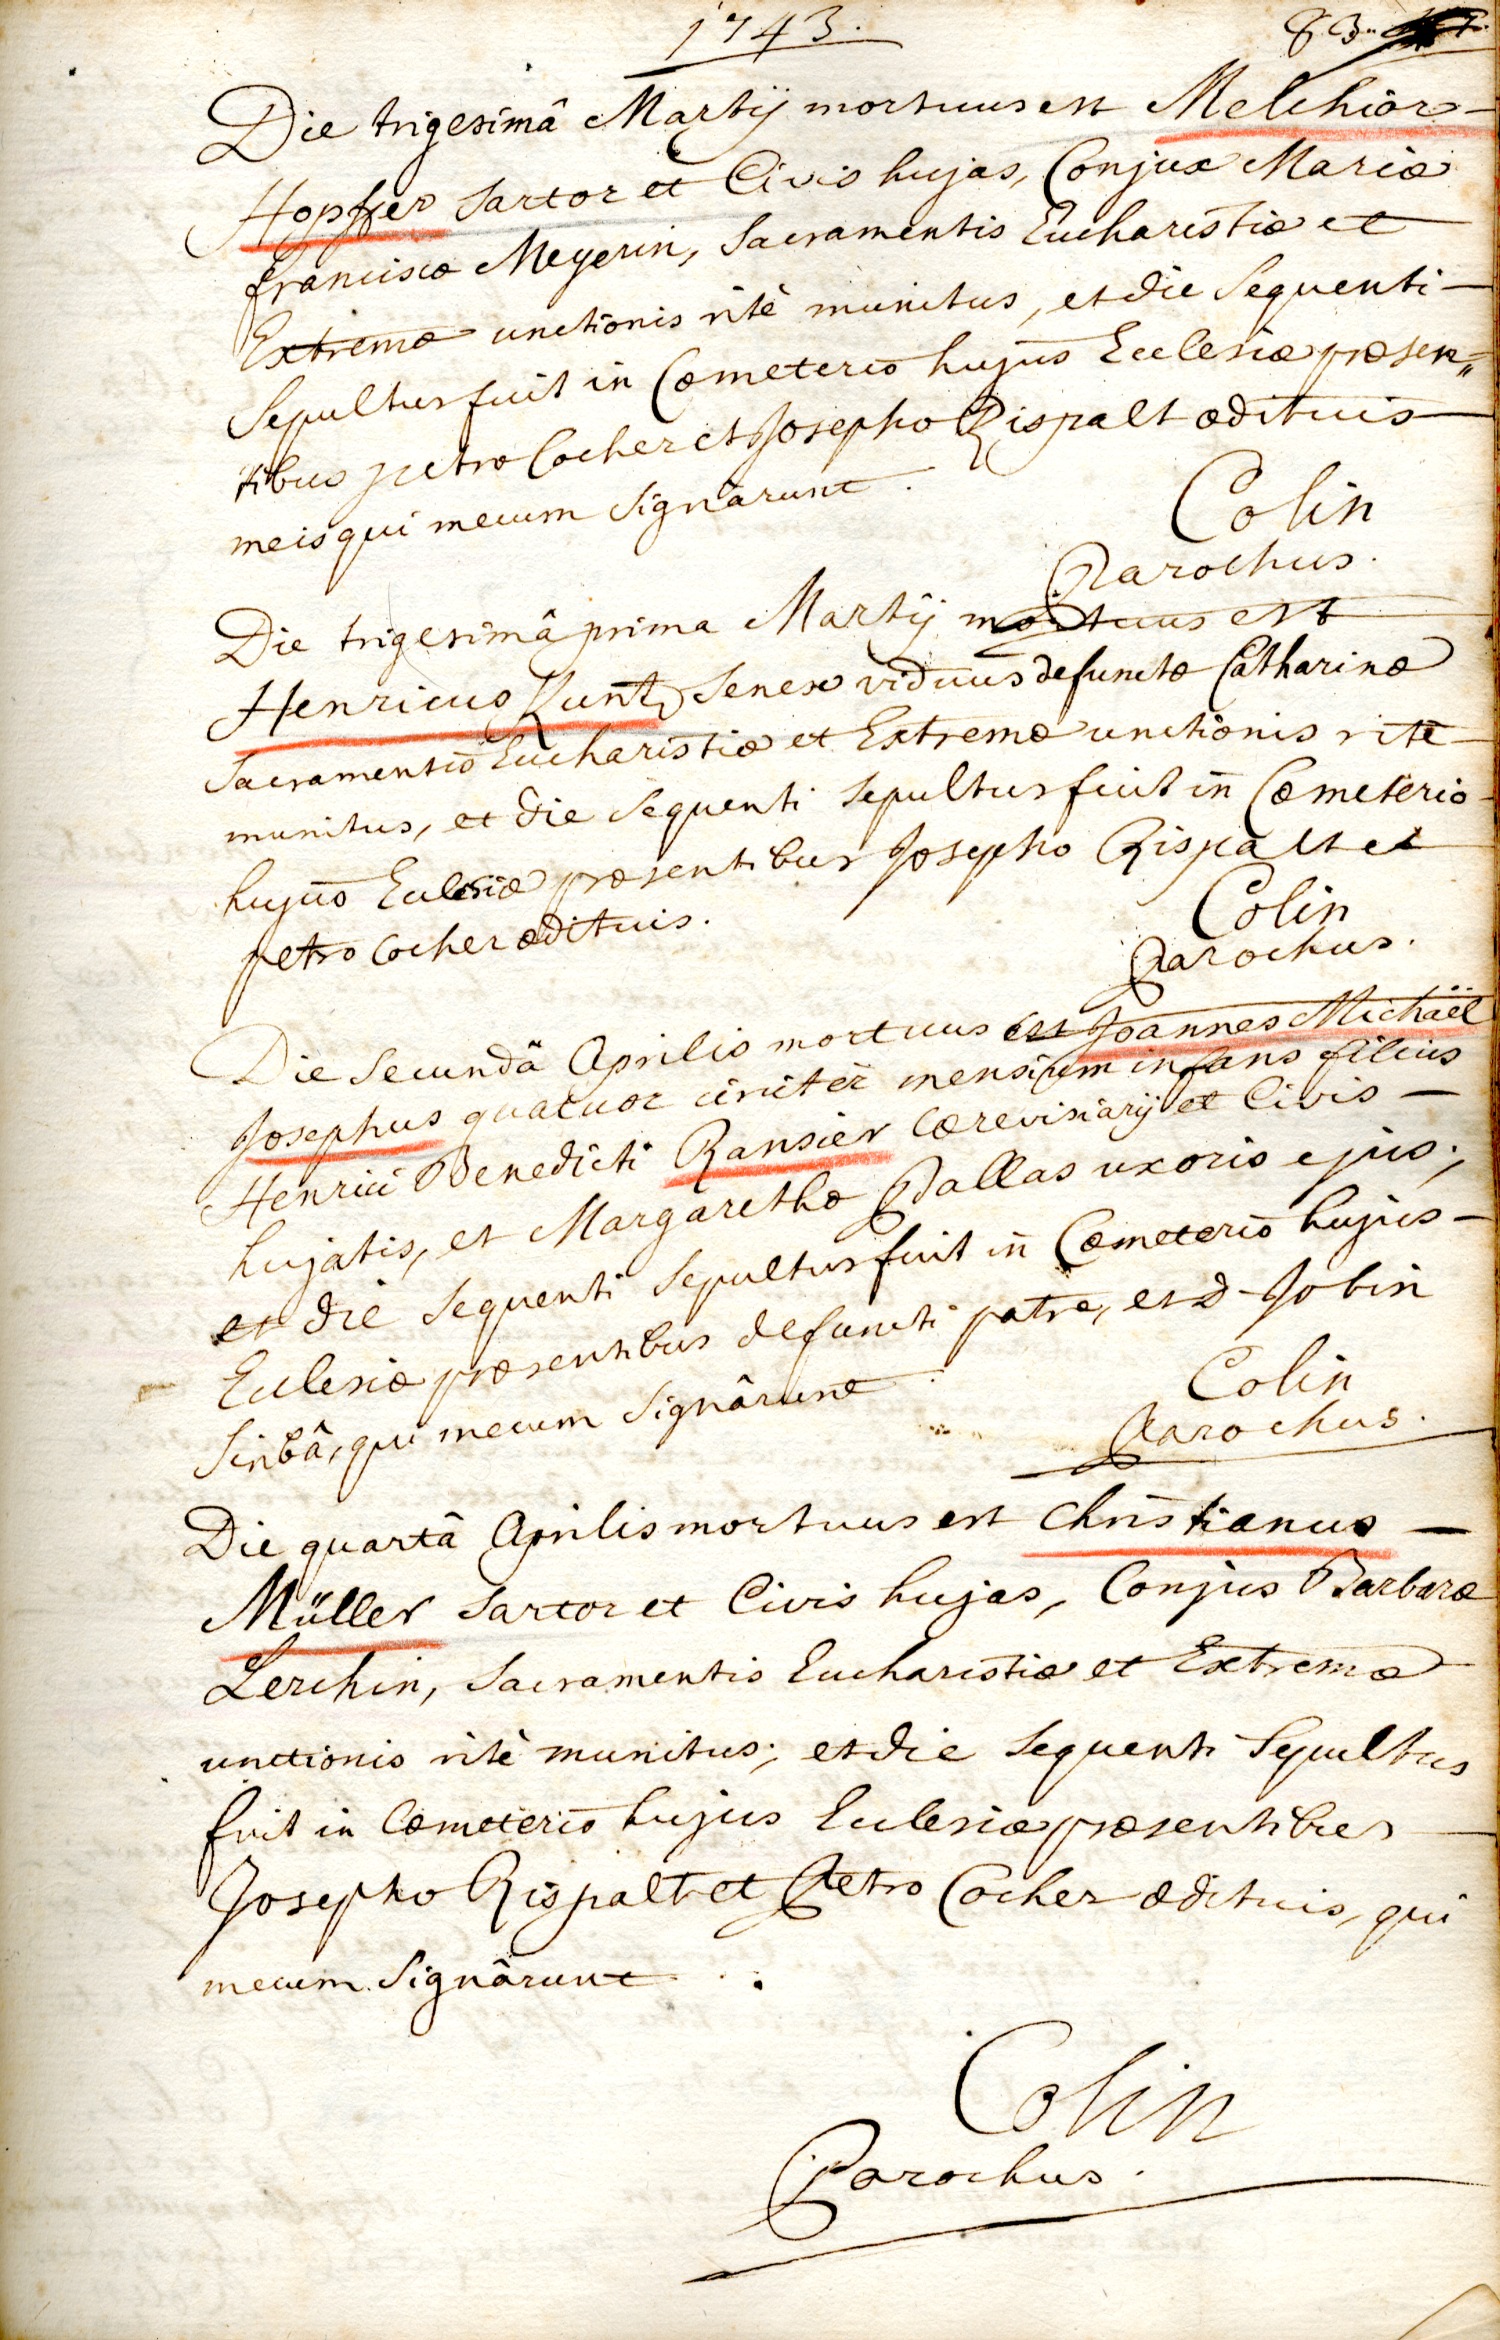 1743.
83.
Die trigesimâ Martij mortuus est Melchior-
Hopffer sartor et Civis hujas, Conjux Mariæ
franciscæ Meyerin, Sacramentis Eucharistiæ et
Extremæ unctionis ritè munitus, et die Sequenti-
Sepultus fuit in Cœmeterio hujus Ecclesiæ præsen„
tibus petro Cocher et Josepho Rispalt ædituis
meis qui mecum Signârunt.
Colin
Parochus.
Die trigesimâ prima Martij mortuus est
Henricus Kuntz Senex viduus defunctæ Catharinæ
Sacramentis Eucharistiæ et Extremæ unctionis ritè-
munitus, et die Sequenti sepultus fuit in Cœmeterio-
hujus Ecclesiæ præsentibus Josepho Rispalt et
petro Cocher ædituis.
Colin
Parochus.
Die Secundâ Aprilis mortuus est Joannes Michaël
Josephus quatuor circitèr mensium infans filius
Henrici Benedicti Ransier Cærevisiarij et Civis -
hujatis, et Margarethæ Pallas uxoris ejus;
et die Sequenti Sepultus fuit in Cœmeterio hujus-
Ecclesiæ præsentibus defuncti patre, et D-Jobin
qui mecum Signârunt.
Colin
Parochus.
Die quartâ Aprilis mortuus est Christianus -
Müller Sartor et Civis hujas, Conjus Barbaræ
Lerchin, Sacramentis Eucharistiæ et Extremæ
unctionis ritè munitus; et die Sequenti Sepultus
fuit in Cœmeterio hujus Ecclesiæ præsentibus
Josepho Rispalt et Petro Cocher ædituis, qui
mecum Signârunt.
Colin
Parochus.